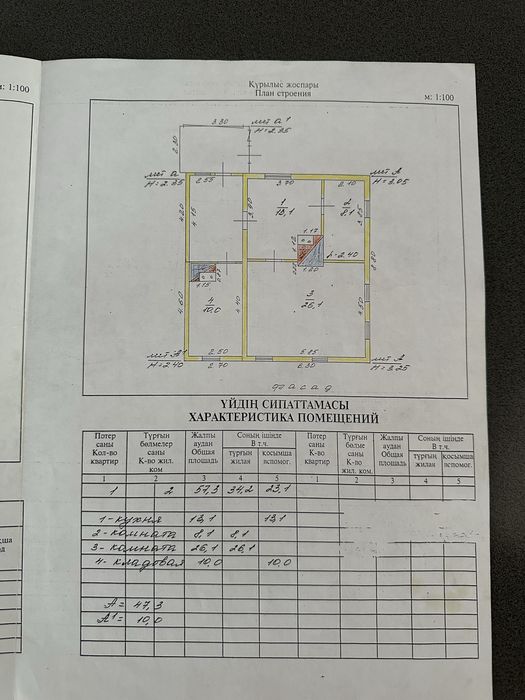 м: 1:100
Құрылыс жоспары
План строения
м: 1:100
3.30
лит а¹
H=2.35
2.30
лит а
H=2.35
2.55
3.70
2.10
лит А
H=3.05
4.20
4.15
3.90
1
13,1
2
8,1
3.85
1.17
h=2.40
1.20
1.15
8.80
4.60
4
10,0
4.40
3
26,1
4.50
лит А¹
H=2.40
2.50
2.70
5.85
6.30
лит А
H=3.25
фасад
ҮЙДІҢ СИПАТТАМАСЫ
ХАРАКТЕРИСТИКА ПОМЕЩЕНИЙ
Пәтер саны Кол-во квартир | Тұрғын бөлмелер саны К-во жил. ком | Жалпы аудан Общая площадь | Соның ішінде В т.ч. | Пәтер саны Кол-во квартир | Тұрғын бөлме саны К-во жил. ком. | Жалпы аудан Общая площадь | Соның ішінде В т.ч.
тұрғын жилая | қосымша вспомог. | тұрғын жилая | қосымша вспомог.
1 2 3 4 5 1 2 3 4 5
1 2 57,3 34,2 23,1
1-кухня 13,1 13,1
2-комната 8,1 8,1
3-комната 26,1 26,1
4-кладовая 10,0 10,0
А= 47,3
А¹= 10,0